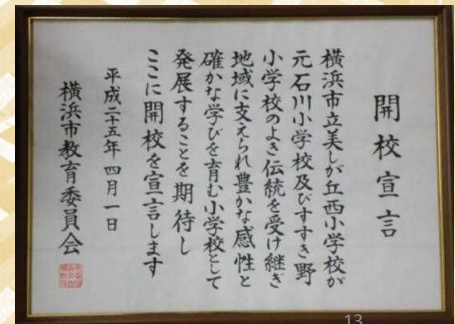 開校宣言
横浜市立美しが丘西小学校が
元石川小学校及びすすき野
小学校のよき伝統を受け継ぎ
地域に支えられ豊かな感性と
確かな学びを育む小学校として
発展することを期待し
ここに開校を宣言します
平成二十五年四月一日
横浜市教育委員会
13